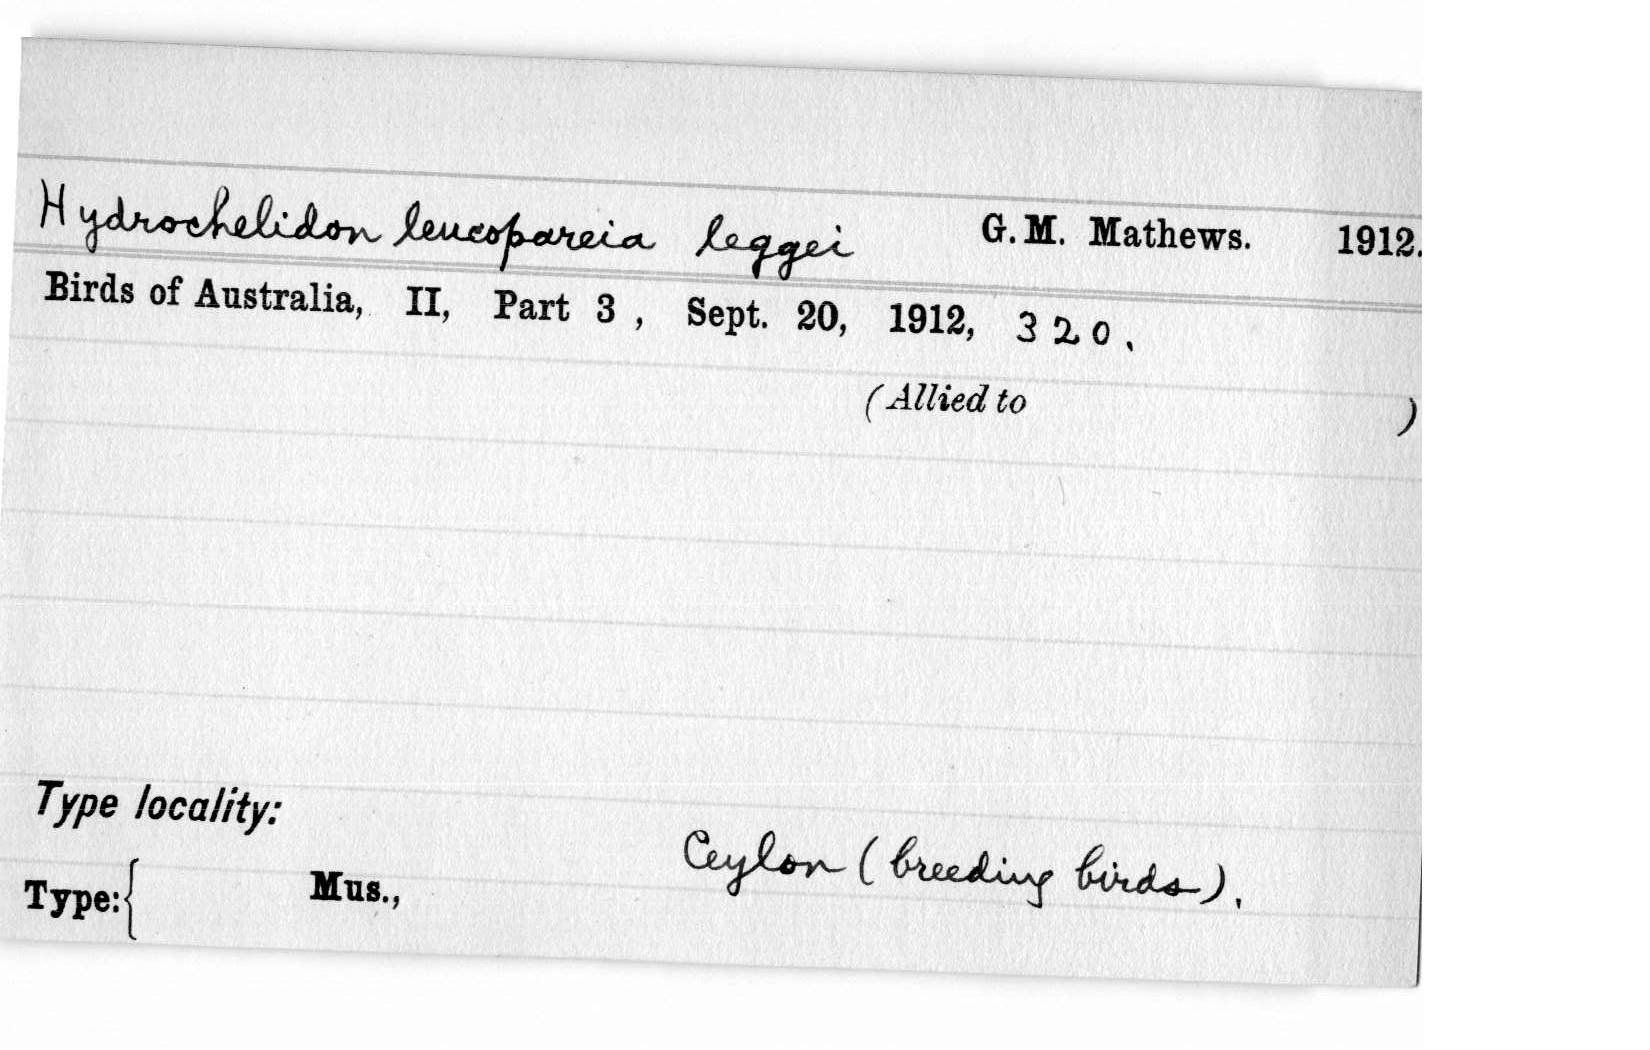 Hydrochelidon leucopareia leggei G. M. Mathews. 1912.
Birds of Australia, II, Part 3, Sept. 20, 1912, 320.
(Allied to )
Type locality:
Ceylon (breeding birds).
Type:{ Mus.,